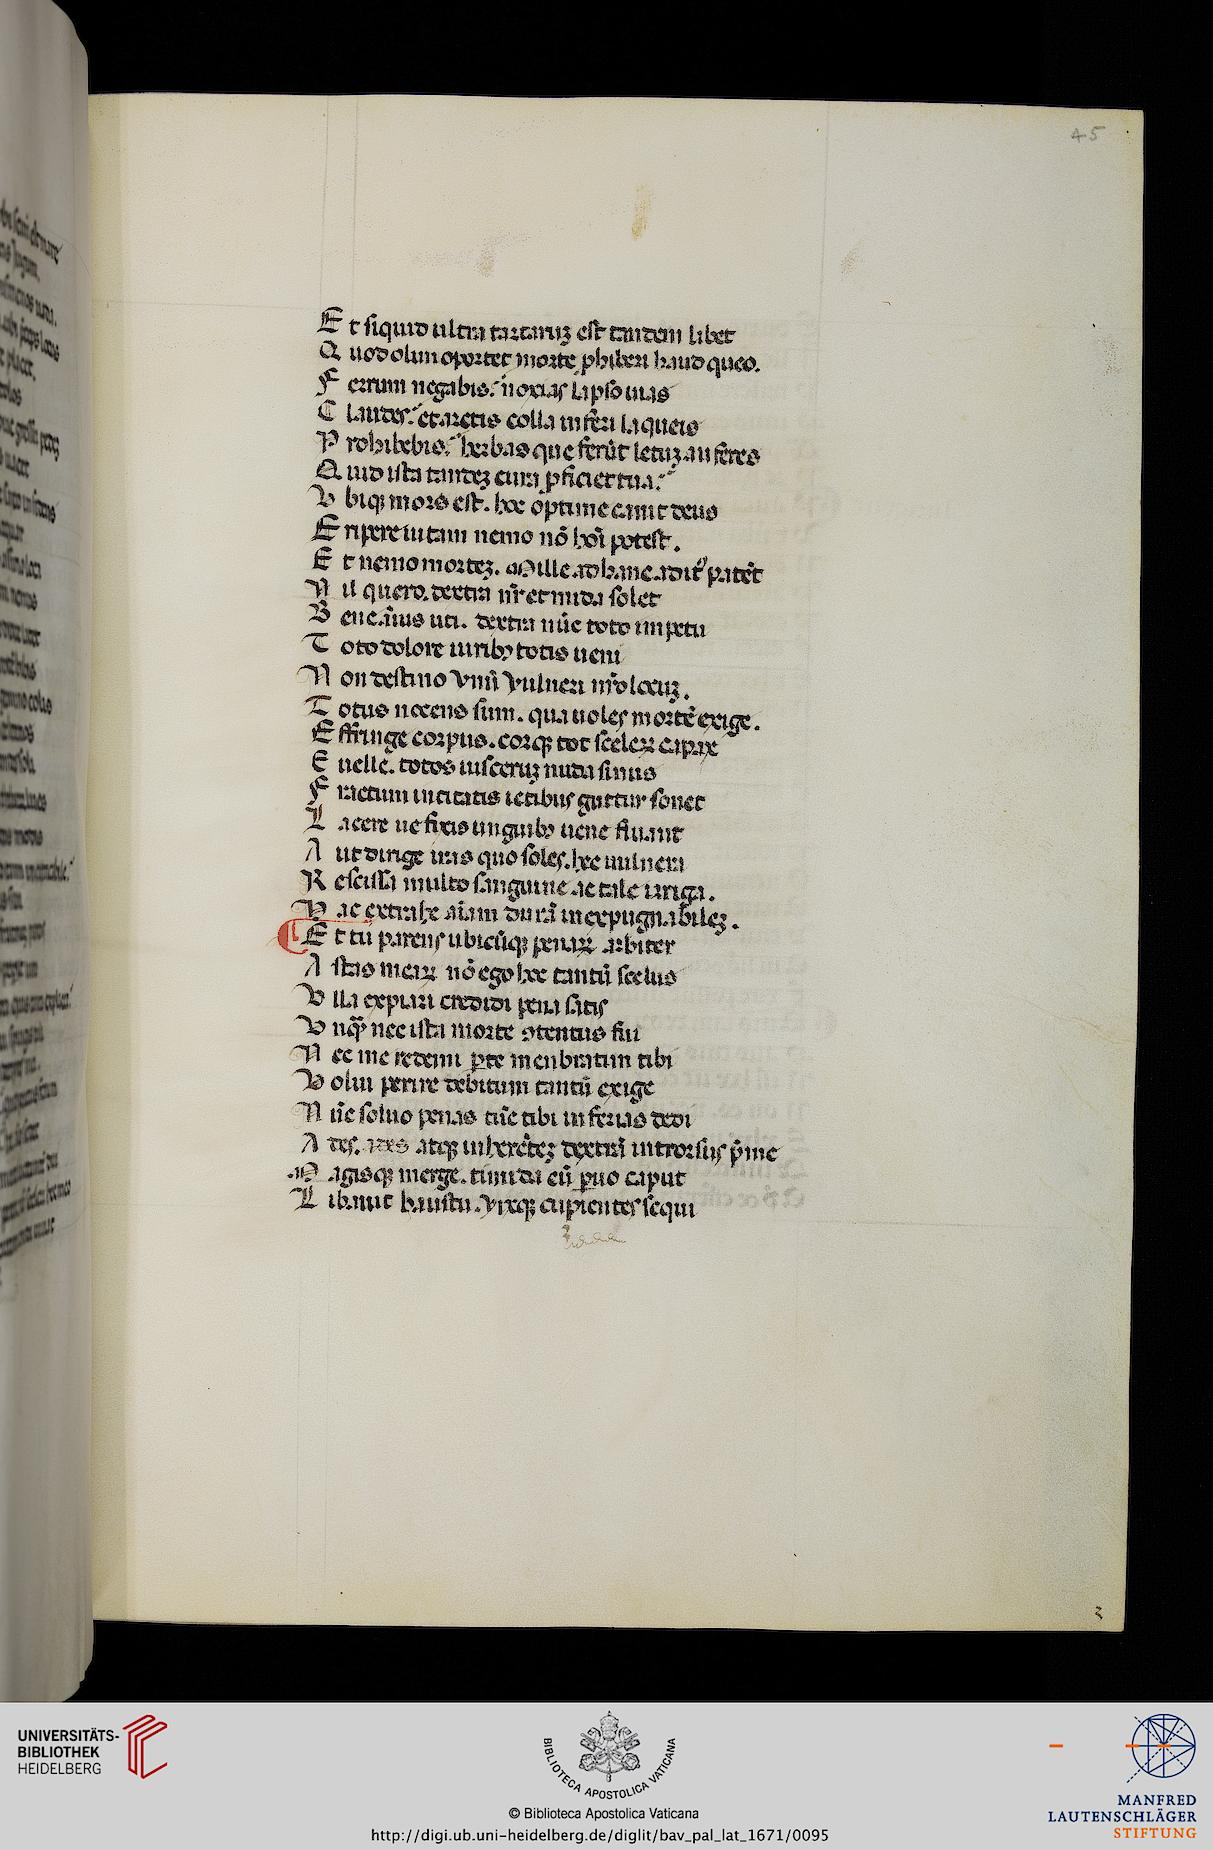 45
Et siquid ultra tartaruȝ est tandem libet
Quod olim oportet morte ꝓhiberi haud queo.
Ferrum negabis. noxias lapso uias
Claudes. et artis colla inseri laqueis
Prohibebis. herbas que ferūt letuȝ auferes
Quid ista tandeȝ cura ꝓficiet tua.
Vbiqȝ mors est. hoc optime cauit deus
Eripere uitam nemo nō hoı̄ potest.
Et nemo morteȝ. Mille ad hanc adit᾿ patēt
Nil quero. dextra nr̄ et nuda solet
Bene aı̄us uti. dextra nūc toto impetu
Toto dolore uiribꝫ totis ueni
Non destino vnū vulneri nr̄o locuȝ.
Totus nocens sum. qua uoles mortē exige.
Effringe corpus. corqȝ tot sceleꝝ capax
Euelle. totos uisceruȝ nuda sinus
Fractum incitatis ictibus guttur sonet
Lacere ue fixis unguibꝫ uene fluant
Aut dirige iras quo soles. hec uulnera
Rescissa multo sanguine ac tale irriga.
Hac extrahe aı̄am durā inexpugnabileȝ.
Et tū parens ubicūqȝ penaꝝ arbiter
Astas meaꝝ nō ego hoc tantū scelus
Vlla expiari credidi pena satis
Vnqȝ nec ista morte ꝯtentus fui
Nec me redemi ꝑte menbratim tibi
Volui perire debitum tantū exige
Nūc soluo penas tūc tibi inferias dedi
Ades. ades atqȝ inhertēȝ dextrā introrsus p̄me
Magisqȝ merge. timida eū ꝑuo caput
Libauit haustu. vixqȝ cupientes sequi
2
UNIVERSITÄTS-
BIBLIOTHEK
HEIDELBERG
BIBLIOTECA APOSTOLICA VATICANA
© Biblioteca Apostolica Vaticana
http://digi.ub.uni-heidelberg.de/diglit/bav_pal_lat_1671/0095
MANFRED
LAUTENSCHLÄGER
STIFTUNG